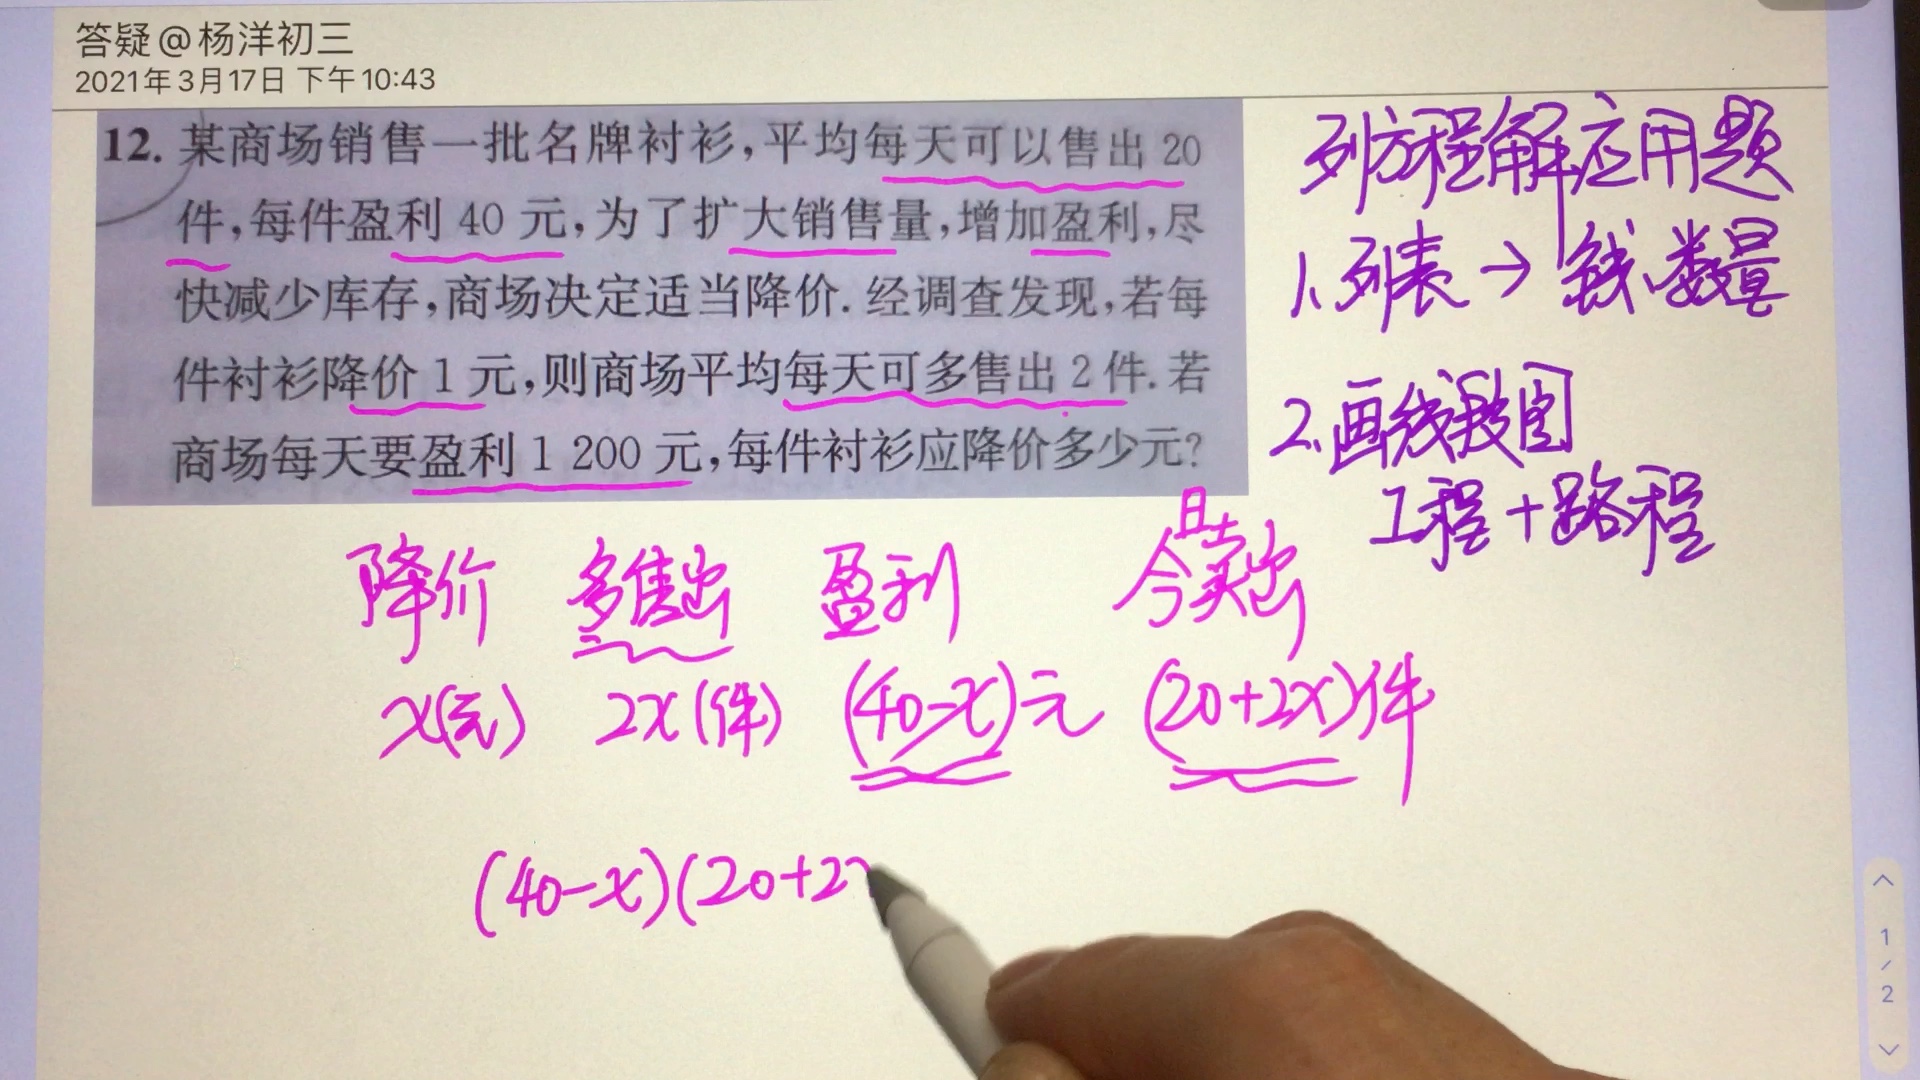 答疑@杨洋初三
2021年3月17日 下午10:43
12. 某商场销售一批名牌衬衫,平均每天可以售出 20
件,每件盈利 40 元,为了扩大销售量,增加盈利,尽
快减少库存,商场决定适当降价. 经调查发现,若每
件衬衫降价 1 元,则商场平均每天可多售出 2 件. 若
商场每天要盈利 1 200 元,每件衬衫应降价多少元?
列方程解应用题
1、列表→钱、数量
2、画线段图
工程+路程
降价 多售出 盈利 今卖出
x(元) 2x(件) (40-x)元 (20+2x)件
(40-x)(20+2
1
/
2